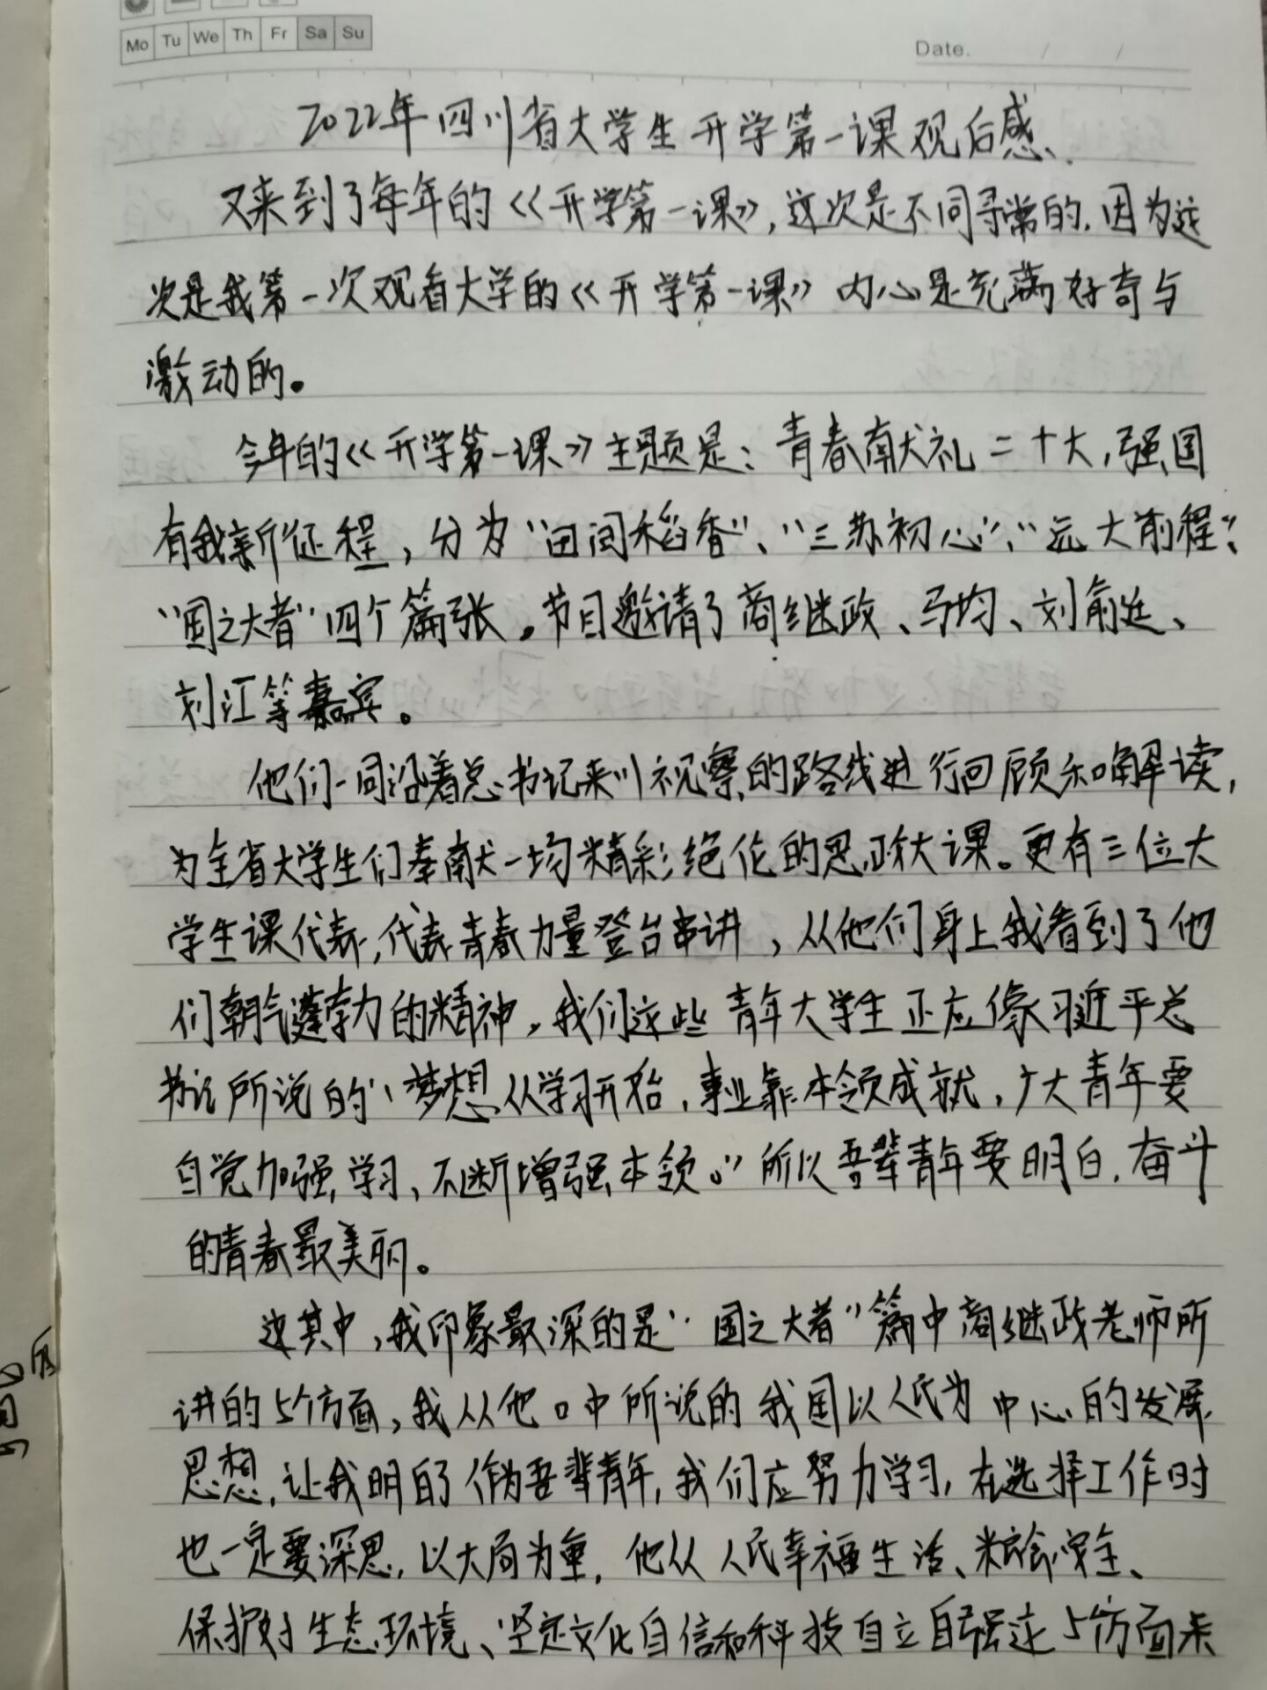 Mo Tu We Th Fr Sa Su
Date. / /
2022年四川省大学生开学第一课观后感、
又来到了每年的《开学第一课》,这次是不同寻常的,因为这
次是我第一次观看大学的《开学第一课》内心是充满好奇与
激动的。
今年的《开学第一课》主题是：青春献礼二十大,强国
有我新征程,分为“田间稻香”、“三苏初心”、“远大前程”、
“国之大者”四个篇张。节目邀请了商继政、马均、刘前近、
刘江等嘉宾。
他们一同沿着总书记来川视察的路线进行回顾和解读,
为全省大学生们奉献一场精彩绝伦的思政大课。更有三位大
学生课代表,代表青春力量登台串讲,从他们身上我看到了他
们朝气蓬勃的精神。我们这些青年大学生正应像习近平总
书记所说的“梦想从学习开始,事业靠本领成就,广大青年要
自觉加强学习、不断增强本领。”所以吾辈青年要明白,奋斗
的青春最美丽。
这其中,我印象最深的是“国之大者”篇中商继政老师所
讲的5个方面,我从他口中所说的我国以人民为中心的发展
思想,让我明白了作为吾辈青年,我们应努力学习,在选择工作时
也一定要深思,以大局为重,他从人民幸福生活、粮食安全、
保护好生态环境、坚定文化自信和科技自立自强这5个方面来